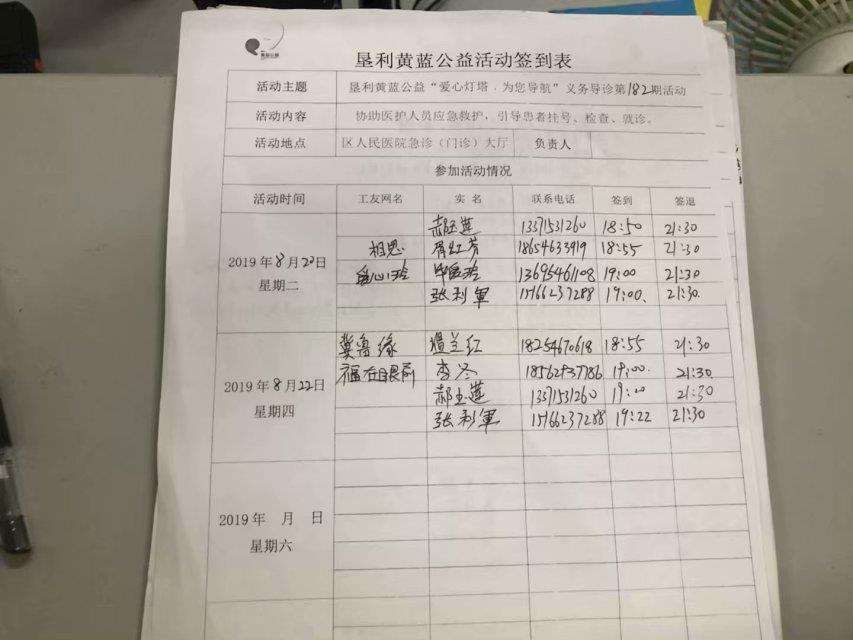 垦利黄蓝公益活动签到表
活动主题 垦利黄蓝公益“爱心灯塔﹒为您导航”义务导诊第182期活动
活动内容 协助医护人员应急救护，引导患者挂号、检查、就诊。
活动地点 区人民医院急诊（门诊）大厅 负责人
参加活动情况
活动时间 工友网名 实 名 联系电话 签到 签退
2019年8月20日
星期二
郝玉莲 13371531260 18:50 21:30
相思 红芳 18654633919 18:55 21:30
13695461108 19:00 21:30
张利軍 15166237288 19:00. 21:30.
2019年8月22日
星期四
冀鲁缘 兰红 18254670618 18:55 21:30
福在眼前 李冬 18562937786 19:00. 21:30
郝玉莲 13371531260 19:20 21:30
张利軍 15166237288 19:22 21:30
2019年 月 日
星期六